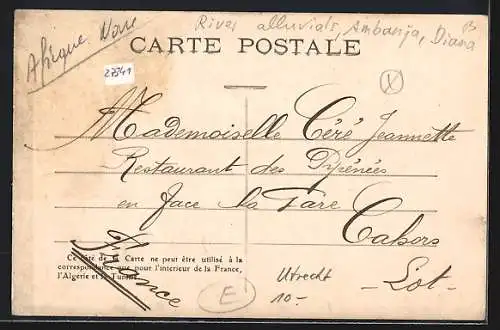 River alluvials, Ambanja, Diana
Afrique Noire
CARTE POSTALE
27341
X
Mademoiselle Céré Jeannette
Restaurant des Pyrénées
en face la Gare
Cahors
Lot
France
Ce côté de la Carte ne peut être utilisé à la
correspondance que pour l'intérieur de la France,
l'Algérie et la Tunisie
Utrecht
10.-
E